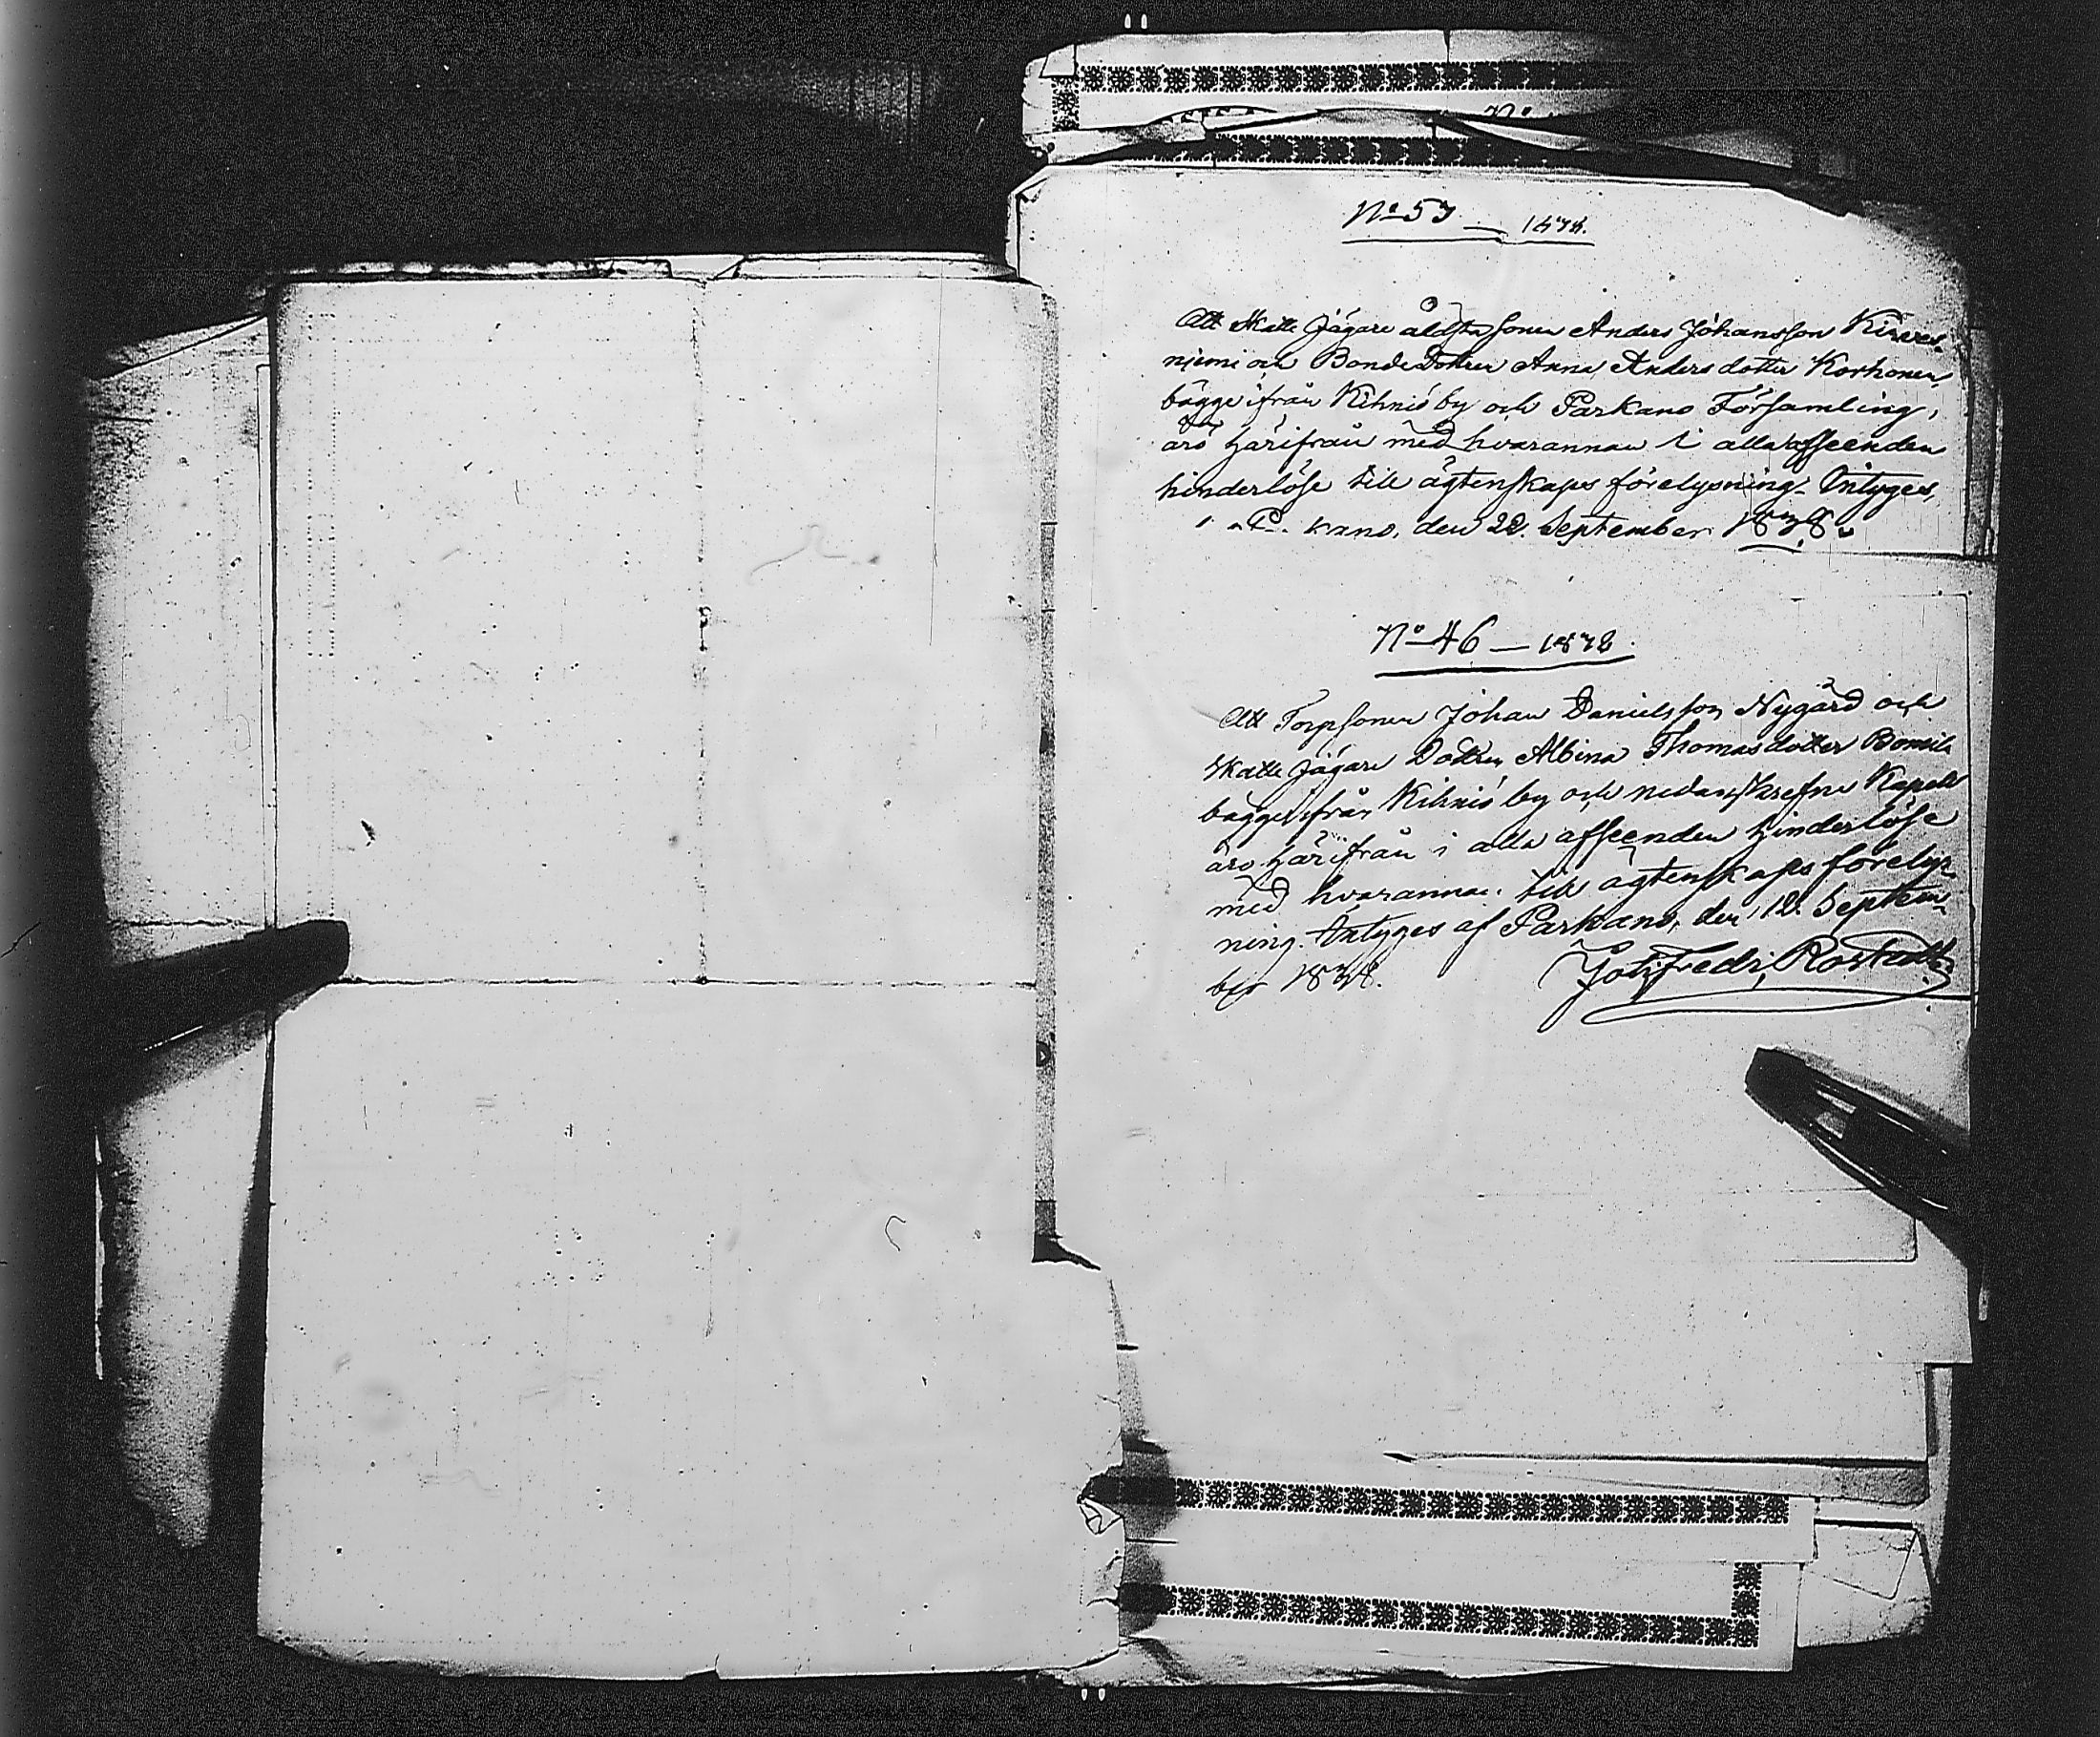 No 57 — 1878.
Att Skatte Jägare äldsta Sonen Anders Johansson Kirves-
njemi och Bonde Dottren Anna Anders dotter Korhonen,
bägge ifrån Kihniö by och Parkano Församling,
äro härifrån med hvarannan i alla afseenden
hinderlöse till ägtenskaps förelysning. Intyges,
den 22. September 1878.
No 46 — 1878.
Att Torpsonen Johan Danielsson Nygård och
Skatte Jägare Dottren Albina Thomasdotter
bägge ifrån Kihniö by och nedanskrefne Kapell
äro härifrån i alla afseenden hinderlöse
med hvarannan till ägtenskaps förelys-
ning. Intyges af Parkano, den 12. Septem-
ber 1878. Gotfredi, Rostedt